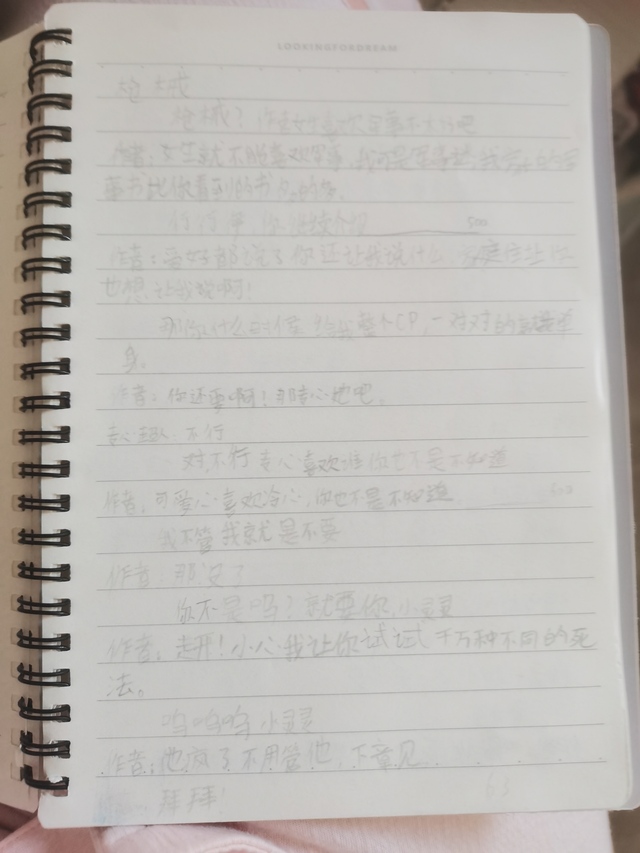 LOOKINGFORDREAM
枪械
枪械？作者女生喜欢军事不太行吧
作者：女生就不能喜欢军事，我可是军事迷，我家的军
事书比你看到的书多的多。
行行行，你继续介绍 500
作者：爱好都说了你还让我说什么，家庭住址你
也想让我说啊！
那你什么时候给我整个CP，一对对的就我单
身。
作者：你还要啊！那专心地吧。
专心：不行
对，不行专心喜欢谁你也不是不知道
作者，可爱心喜欢冷心，你也不是不知道 600
我不管我就是不要
作者：那没了
你不是吗？就要你，小灵灵
作者：走开！小心我让你试试千万种不同的死
法。
呜呜呜小灵灵
作者：他疯了不用管他，下章见......
拜拜！ 63